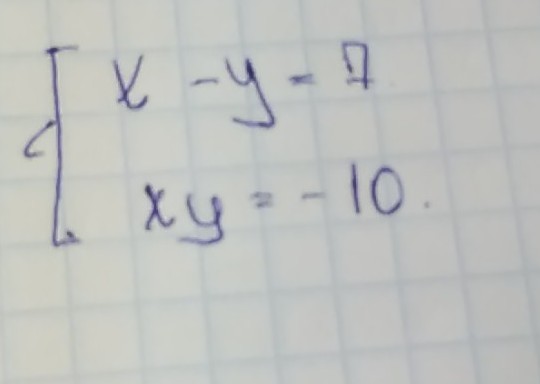 x - y = 7
xy = -10.